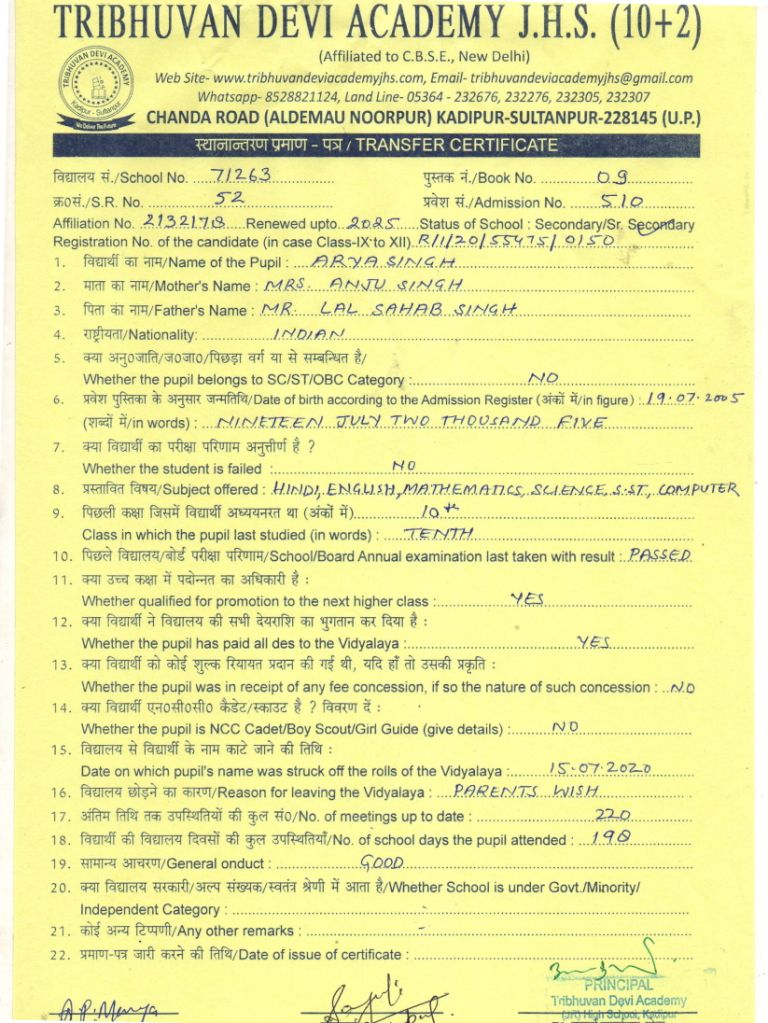 TRIBHUVAN DEVI ACADEMY J.H.S. (10+2)
(Affiliated to C.B.S.E., New Delhi)
TRIBHUVAN DEVI ACADEMY
Kadipur - Sultanpur
We Deliver The Future
Web Site- www.tribhuvandeviacademyjhs.com, Email- tribhuvandeviacademyjhs@gmail.com
Whatsapp- 8528821124, Land Line- 05364 - 232676, 232276, 232305, 232307
CHANDA ROAD (ALDEMAU NOORPUR) KADIPUR-SULTANPUR-228145 (U.P.)
स्थानान्तरण प्रमाण - पत्र / TRANSFER CERTIFICATE
विद्यालय सं./School No. 71263 पुस्तक नं./Book No. 09
क्र०सं./S.R. No. 52 प्रवेश सं./Admission No. 510
Affiliation No. 2132178 Renewed upto 2025 Status of School : Secondary/Sr. Secondary
Registration No. of the candidate (in case Class-IX to XII) R/1/20/55475/0150
1. विद्यार्थी का नाम/Name of the Pupil : ARYA SINGH
2. माता का नाम/Mother's Name : MRS. ANJU SINGH
3. पिता का नाम/Father's Name : MR. LAL SAHAB SINGH
4. राष्ट्रीयता/Nationality: INDIAN
5. क्या अनु०जाति/ज०जा०/पिछड़ा वर्ग या से सम्बन्धित है/
Whether the pupil belongs to SC/ST/OBC Category : NO
6. प्रवेश पुस्तिका के अनुसार जन्मतिथि/Date of birth according to the Admission Register (अंकों में/in figure) : 19.07.2005
(शब्दों में/in words) : NINETEEN JULY TWO THOUSAND FIVE
7. क्या विद्यार्थी का परीक्षा परिणाम अनुत्तीर्ण है ?
Whether the student is failed : NO
8. प्रस्तावित विषय/Subject offered : HINDI, ENGLISH, MATHEMATICS, SCIENCE, S.ST., COMPUTER
9. पिछली कक्षा जिसमें विद्यार्थी अध्ययनरत था (अंकों में) 10th
Class in which the pupil last studied (in words) : TENTH
10. पिछले विद्यालय/बोर्ड परीक्षा परिणाम/School/Board Annual examination last taken with result : PASSED
11. क्या उच्च कक्षा में पदोन्नत का अधिकारी है :
Whether qualified for promotion to the next higher class : YES
12. क्या विद्यार्थी ने विद्यालय की सभी देयराशि का भुगतान कर दिया है :
Whether the pupil has paid all des to the Vidyalaya : YES
13. क्या विद्यार्थी को कोई शुल्क रियायत प्रदान की गई थी, यदि हाँ तो उसकी प्रकृति :
Whether the pupil was in receipt of any fee concession, if so the nature of such concession : NO
14. क्या विद्यार्थी एन०सी०सी० कैडेट/स्काउट है ? विवरण दें :
Whether the pupil is NCC Cadet/Boy Scout/Girl Guide (give details) : NO
15. विद्यालय से विद्यार्थी के नाम काटे जाने की तिथि :
Date on which pupil's name was struck off the rolls of the Vidyalaya : 15.07.2020
16. विद्यालय छोड़ने का कारण/Reason for leaving the Vidyalaya : PARENTS WISH
17. अंतिम तिथि तक उपस्थितियों की कुल सं०/No. of meetings up to date : 220
18. विद्यार्थी की विद्यालय दिवसों की कुल उपस्थितियाँ/No. of school days the pupil attended : 198
19. सामान्य आचरण/General onduct : GOOD
20. क्या विद्यालय सरकारी/अल्प संख्यक/स्वतंत्र श्रेणी में आता है/Whether School is under Govt./Minority/
Independent Category : -
21. कोई अन्य टिप्पणी/Any other remarks : -
22. प्रमाण-पत्र जारी करने की तिथि/Date of issue of certificate :
PRINCIPAL
Tribhuvan Devi Academy
(JR) High School, Kadipur